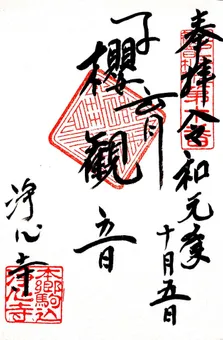 奉拝
令和元年
十月五日
子櫻観音
浄心寺
本郷駒込
浄心寺